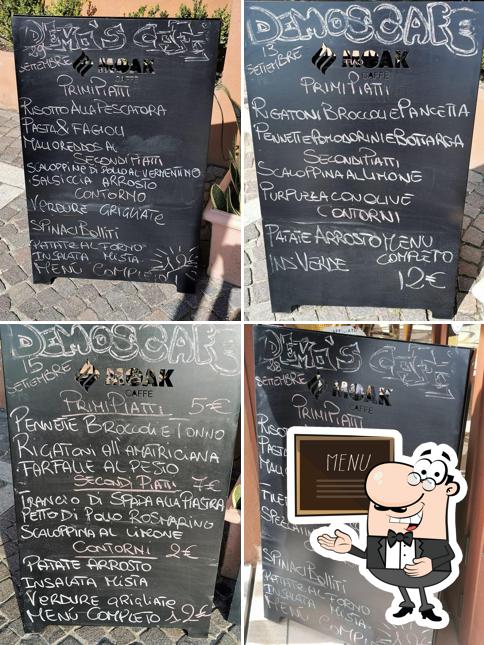 DEMO'S CAFÈ
29
SETTEMBRE
MOAK
CAFFÈ
PRIMI PIATTI
RISOTTO ALLA PESCATORA
PASTA & FAGIOLI
MALLOREDDOS AL
SECONDI PIATTI
SCALOPPINE DI POLLO AL VERMENTINO
SALSICCIA ARROSTO
CONTORNO
VERDURE GRIGLIATE
SPINACI BOLLITI
PATATE AL FORNO
INSALATA MISTA
MENU COMPLETO 12€
DEMOSCAFE
13
SETTEMBRE
MOAK
CAFFÈ
PRIMI PIATTI
RIGATONI BROCCOLI E PANCETTA
PENNETTE POMODORINI E BOTTARGA
SECONDI PIATTI
SCALOPPINA AL LIMONE
CON OLIVE
CONTORNI
PATATE ARROSTO MENU
COMPLETO
INS VERDE
12€
DEMOSCAFE
15
SETTEMBRE
MOAK
CAFFÈ
PRIMI PIATTI 5€
PENNETTE BROCCOLI E TONNO
RIGATONI ALL'AMATRICIANA
FARFALLE AL PESTO
SECONDI PIATTI 7€
TRANCIO DI SPADA ALLA PIASTRA
PETTO DI POLLO ROSMARINO
SCALOPPINA AL LIMONE
CONTORNI 2€
PATATE ARROSTO
INSALATA MISTA
VERDURE GRIGLIATE
MENÙ COMPLETO 12€
DEMO'S CAFÈ
SETTEMBRE
MOAK
CAFFÈ
PRIMI PIATTI
MENU
SPINACI BOLLITI
PATATE AL FORNO
INSALATA MISTA
MENU